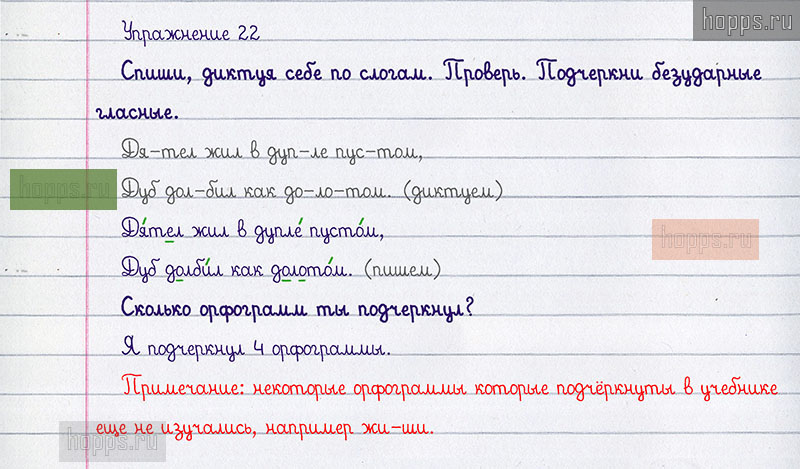 hopps.ru
Упражнение 22
Спиши, диктуя себе по слогам. Проверь. Подчеркни безударные
гласные.
Дя-тел жил в дуп-ле пус-том,
hopps.ru
Дуб дол-бил как до-ло-том. (диктуем)
Дя́тел жил в дупле́ пусто́м,
hopps.ru
Дуб долби́л как долото́м. (пишем)
Сколько орфограмм ты подчеркнул?
Я подчеркнул 4 орфограммы.
Примечание: некоторые орфограммы которые подчёркнуты в учебнике
еще не изучались, например жи-ши.
hopps.ru